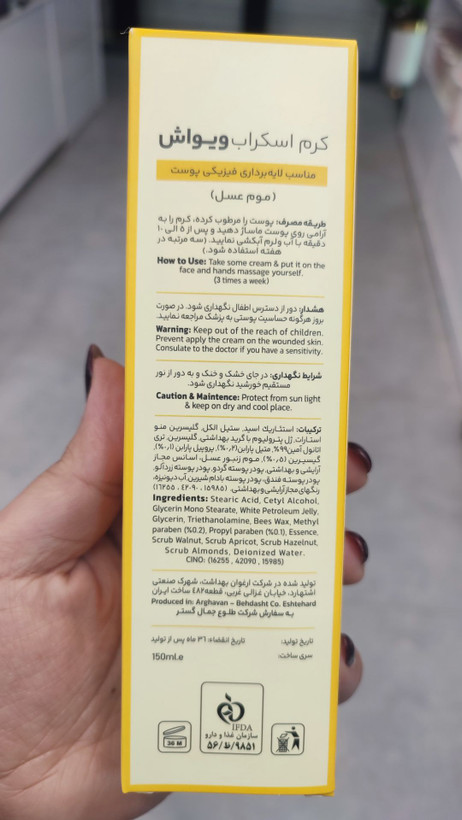 کرم اسکراب ویـواش
مناسب لایه‌برداری فیزیکی پوست
(موم عسل)
طریقه مصرف: پوست را مرطوب کرده، کرم را به
آرامی روی پوست ماساژ دهید و پس از ۵ الی ۱۰
دقیقه با آب ولرم آبکشی نمایید. (سه مرتبه در
هفته استفاده شود.)
How to Use: Take some cream & put it on the
face and hands massage yourself.
(3 times a week)
هشدار: دور از دسترس اطفال نگهداری شود. در صورت
بروز هرگونه حساسیت پوستی به پزشک مراجعه نمایید.
Warning: Keep out of the reach of children.
Prevent apply the cream on the wounded skin.
Consulate to the doctor if you have a sensitivity.
شرایط نگهداری: در جای خشک و خنک و به دور از نور
مستقیم خورشید نگهداری شود.
Caution & Maintence: Protect from sun light
& keep on dry and cool place.
ترکیبات: استئاریک اسید، ستیل الکل، گلیسرین منو
استئارات، ژل پترولیوم با گرید بهداشتی، گلیسرین، تری
اتانول آمین۹۹٪، متیل پارابن(۰٫۲٪)، پروپیل پارابن (۰٫۱٪)،
گلیسیرین (۰٫۵٪)، موم زنبور عسل، اسانس مجاز
آرایشی و بهداشتی، پودر پوسته گردو، پودر پوسته زردآلو
پودر پوسته فندق، پودر پوسته بادام شیرین، آب دیونیزه،
رنگهای مجاز آرایشی و بهداشتی. (۱۵۹۸۵، ۴۲۰۹۰، ۱۶۲۵۵)
Ingredients: Stearic Acid, Cetyl Alcohol,
Glycerin Mono Stearate, White Petroleum Jelly,
Glycerin, Triethanolamine, Bees Wax, Methyl
paraben (%0.2), Propyl paraben (%0.1), Essence,
Scrub Walnut, Scrub Apricot, Scrub Hazelnut,
Scrub Almonds, Deionized Water.
CINO: (16255 , 42090 , 15985)
تولید شده در شرکت ارغوان بهداشت، شهرک صنعتی
اشتهارد، خیابان غزالی غربی، قطعه۴۸۲ ساخت ایران
Produced in: Arghavan – Behdasht Co. Eshtehard
به سفارش شرکت طلـوع جمـال گستـر
تاریخ تولید: تاریخ انقضاء: ۳۶ ماه پس از تولید
سری ساخت: 150ml.e
36 M
IFDA
سازمان غذا و دارو
۵۶/ظ/۹۸۵۱